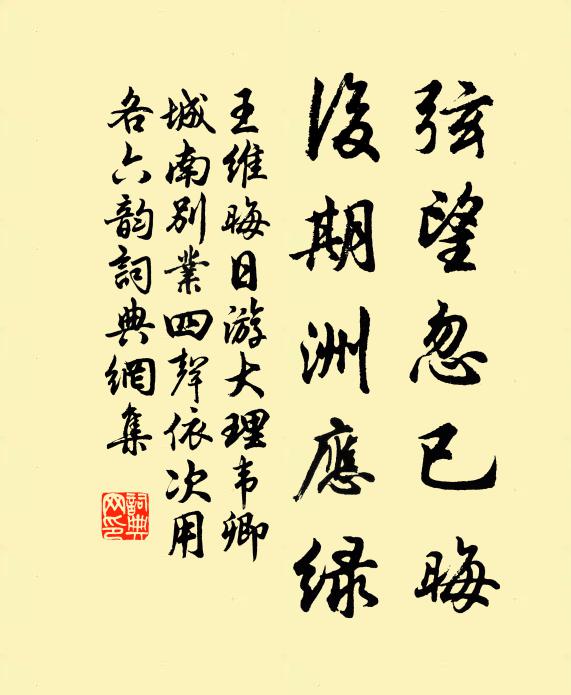 弦望忽已晦
後期洲應綠
王維晦日游大理韦卿
城南別業四聲依次用
各六韵詞典網集
詞典網印